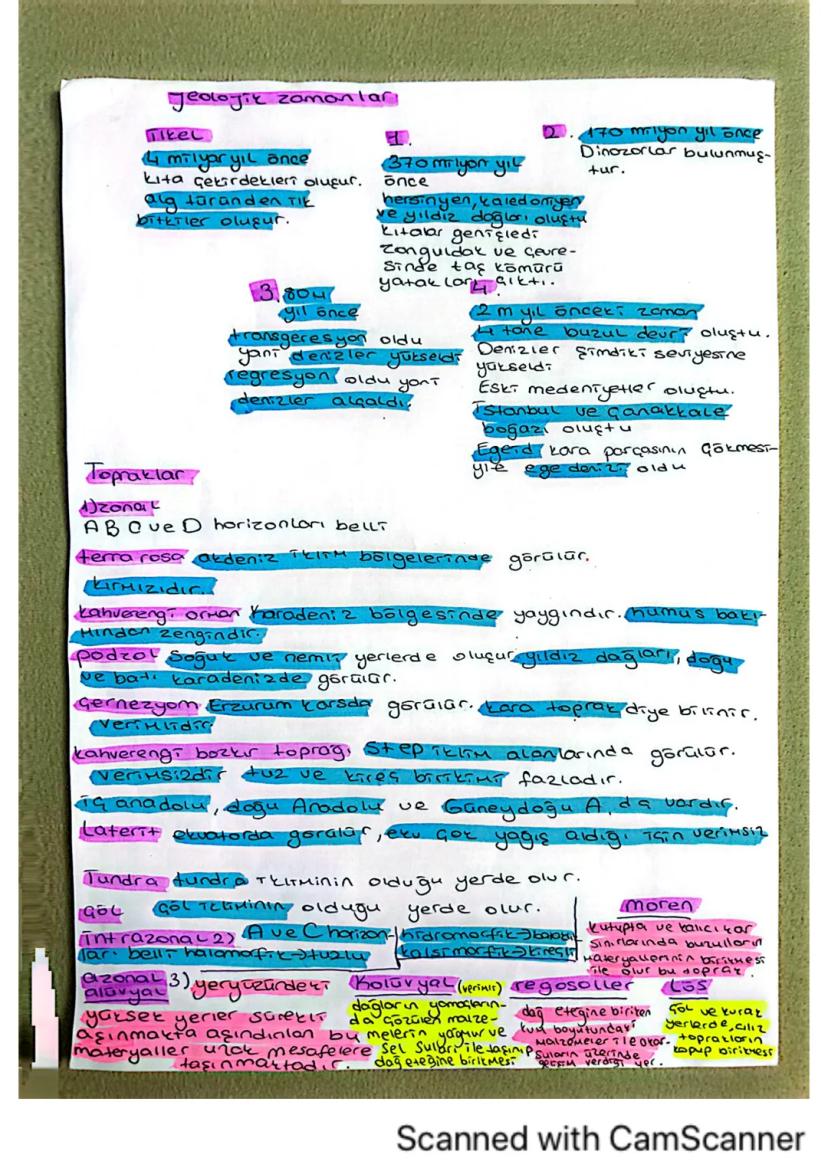 Jeolojik zamanlar
İlkel
4 milyar yıl önce
kıta çekirdekleri oluşur.
alg türünden ilk
bitkiler oluşur.
1.
370 milyon yıl
önce
hersinyen, kaledoniyen
ve yıldız dağları oluştu
kıtalar genişledi
Zonguldak ve çevre-
sinde taş kömürü
yatakları çıktı.
2. 170 milyon yıl önce
Dinozorlar bulunmuş-
tur.
3. 80M
yıl önce
transgeresyon oldu
yani denizler yükseldi
regresyon oldu yani
denizler alçaldı.
4.
2 m yıl önceki zaman
4 tane buzul devri oluştu.
Denizler şimdiki seviyesine
yükseldi
Eski medeniyetler oluştu.
İstanbul ve Çanakkale
boğazı oluştu
Egeid kara parçasının çökmesi-
yle ege denizi oldu
Topraklar
1)zonal
A B C ve D horizonları belli
terra rosa akdeniz iklim bölgelerinde görülür.
kırmızıdır.
kahverengi orman Karadeniz bölgesinde yaygındır. humus bakı-
mından zengindir.
podzol Soğuk ve nemli yerlerde oluşur yıldız dağları, doğu
ve batı karadenizde görülür.
çernezyom Erzurum Karsda görülür. kara toprak diye bilinir.
verimlidir
kahverengi bozkır toprağı Step iklim alanlarında görülür.
verimsizdir tuz ve kireç birikimi fazladır.
iç anadolu, doğu Anadolu ve Güneydoğu A, da vardır.
Laterit ekvatorda görülür, eku çok yağış aldığı için verimsiz
Tundra tundra ikliminin olduğu yerde olur.
Çöl Çöl ikliminin olduğu yerde olur.
İntrazonal 2) A ve C horizon-
ları belli halomorfik→tuzlu
hidromorfik→
kalsimorfik→kireçli
moren
kutupta ve kalıcı kar
sınırlarında buzulların
materyallerinin birikmesi
ile olur bu toprak
azonal 3) yeryüzündeki
alüvyal
yüksek yerler sürekli
aşınmakta aşındırılan bu
materyaller uzak mesafelere
taşınmaktadır.
Kolüvyal (verimli)
dağların yamaçların-
da çözülen malze-
melerin yağmur ve
Sel Suları ile taşınıp
dağ eteğine birikmesi
regosoller
dağ eteğine biriken
kum boyutundaki
malzemeler ile olur.
Suların üzerinde
geçim verdiği yer.
Lös
Çöl ve kurak
yerlerde, cılız
toprakların
kopup birikmesi
Scanned with CamScanner